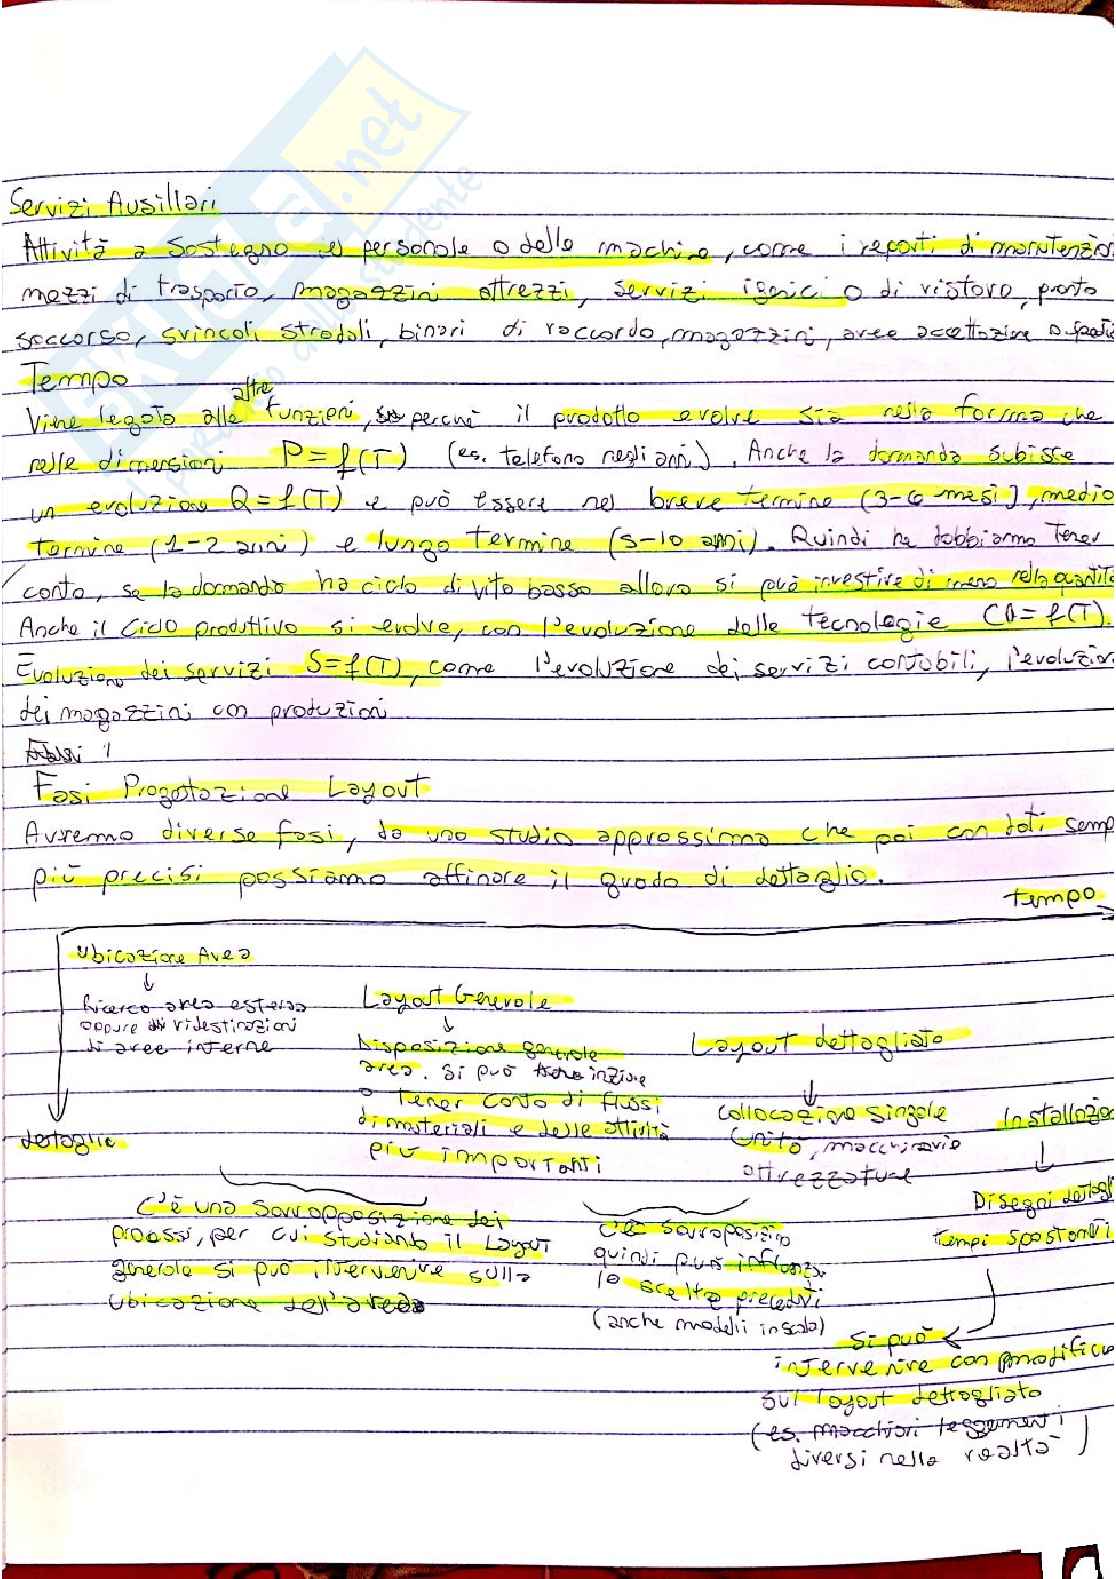 Servizi Ausillari
Attività a sostegno del personale o delle machine, come i reparti di manutenzion
mezzi di trasporto, magazzini attrezzi, servizi igenici o di ristoro, pronto
soccorso, svincoli stradali, binari di raccordo, magazzini, aree accettazione o
Tempo
Viene legato alle altre funzioni, perché il prodotto evolve sia nella forma che
nelle dimensioni P=f(T) (es. telefono negli anni). Anche la domanda subisce
un evoluzione Q=f(T) e può essere nel breve termine (3-6 mesi), medio
termine (1-2 anni) e lungo termine (5-10 anni). Quindi ne dobbiamo tener
conto, se la domanda ha ciclo di vita basso allora si può investire di meno nella quantità
Anche il ciclo produttivo si evolve, con l'evoluzione delle tecnologie CD=f(T).
Evoluzione dei servizi S=f(T), come l'evoluzione dei servizi contabili, l'evoluzion
dei magazzini con produzioni
Fasi Progettazione Layout
Avremo diverse fasi, da uno studio approssimo che poi con dati semp
più precisi possiamo affinare il grado di dettaglio.
tempo
Ubicazione Area
Ricerca area esterna
oppure ridestinazioni
di aree interne
Layout Generale
Disposizione generale
area. Si può inziare
a tener conto di flussi
di materiali e delle attività
più importanti
Layout dettagliato
Collocazione singole
unità, macchinario
attrezzature
Installazion
Disegni dettagli
tempi spostanti
dettaglio
C'è una sovrapposizione dei
processi, per cui studiando il Layout
generale si può intervenire sulla
ubicazione dell'area
C'è sovraposizion
quindi può influenza
le scelte precedenti
(anche modelli in scala)
Si può
intervenire con modifica
sul layout dettagliato
(es. macchiari leggermenti
diversi nella realtà)